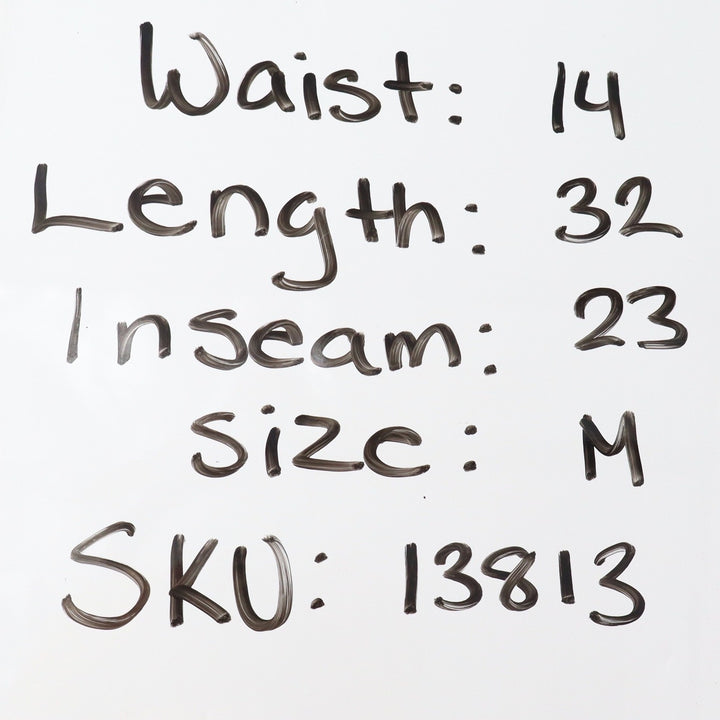 Waist: 14
Length: 32
Inseam: 23
Size: M
SKU: 13813